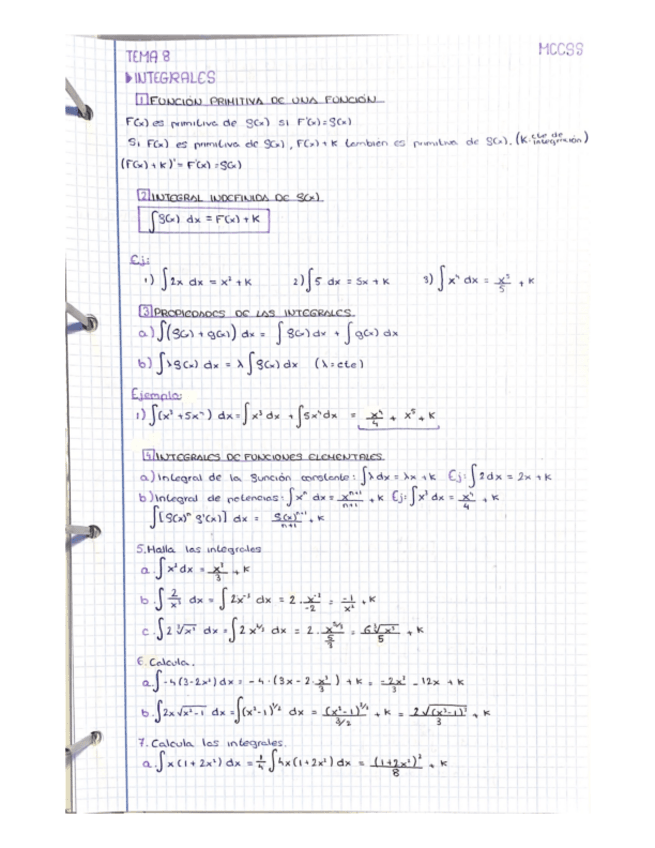 MCCSS
TEMA 8
▶INTEGRALES
1 FUNCIÓN PRIMITIVA DE UNA FUNCIÓN
F(x) es primitiva de f(x) si F'(x)=f(x)
Si F(x) es primitiva de f(x), F(x)+K también es primitiva de f(x). (K: cte de integración)
(F(x)+K)' = F'(x) = f(x)
2 INTEGRAL INDEFINIDA DE f(x)
∫f(x) dx = F(x) + K
Ej:
1) ∫2x dx = x² + K 2) ∫5 dx = 5x + K 3) ∫x⁴ dx = x⁵/5 + K
3 PROPIEDADES DE LAS INTEGRALES.
a) ∫(f(x) + g(x)) dx = ∫f(x) dx + ∫g(x) dx
b) ∫λf(x) dx = λ∫f(x) dx (λ=cte)
Ejemplo:
1) ∫(x³ + 5x⁴) dx = ∫x³ dx + ∫5x⁴ dx = x⁴/4 + x⁵ + K
4 INTEGRALES DE FUNCIONES ELEMENTALES.
a) Integral de la función constante: ∫λ dx = λx + K Ej: ∫2 dx = 2x + K
b) Integral de potencias: ∫xⁿ dx = xⁿ⁺¹/n+1 + K Ej: ∫x³ dx = x⁴/4 + K
∫[f(x)ⁿ f'(x)] dx = f(x)ⁿ⁺¹/n+1 + K
5. Halla las integrales
a. ∫x² dx = x³/3 + K
b. ∫2/x³ dx = ∫2x⁻³ dx = 2 · x⁻²/-2 = -1/x² + K
c. ∫2 ∛x² dx = ∫2x^2/3 dx = 2 · x^5/3 / 5/3 = 6∛x⁵/5 + K
6. Calcula.
a. ∫-4(3-2x²) dx = -4 · (3x - 2 · x³/3) + K = -2x³/3 - 12x + K
b. ∫2x√x²-1 dx = ∫(x²-1)^1/2 dx = (x²-1)^3/2 / 3/2 + K = 2√(x²-1)³/3 + K
7. Calcula las integrales.
a. ∫x(1+2x²) dx = 1/4 ∫4x(1+2x²) dx = (1+2x²)²/8 + K